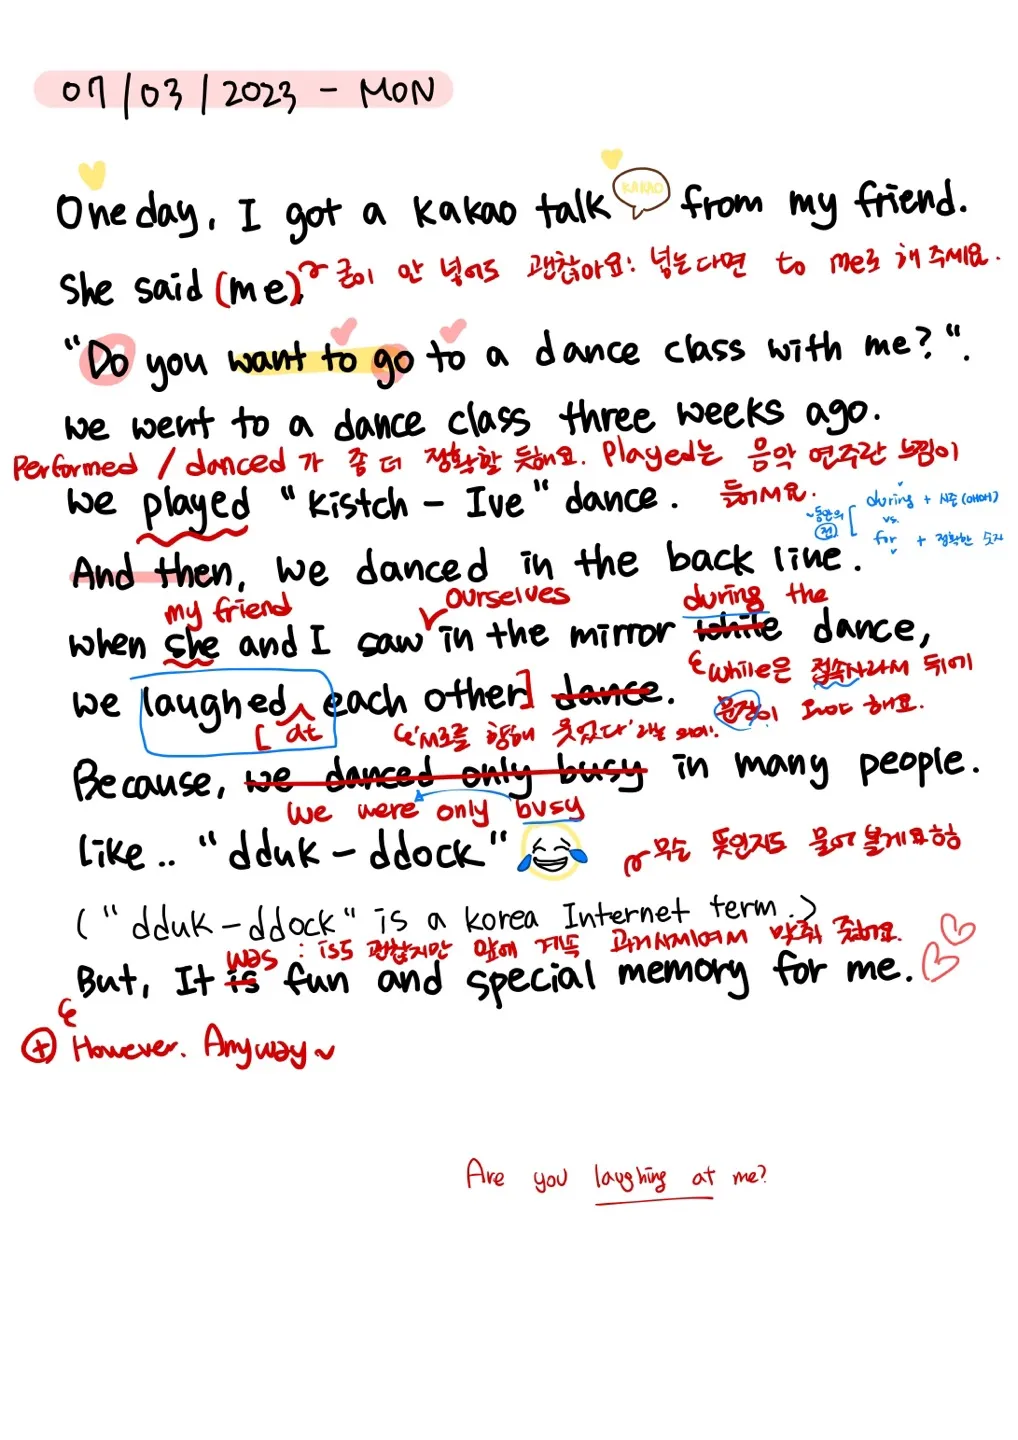 07/03/2023 - MON
One day, I got a kakao talk KAKAO from my friend.
She said (me). 굳이 안 넣어도 괜찮아요! 넣는다면 to me로 해주세요.
"Do you want to go to a dance class with me?".
we went to a dance class three weeks ago.
Performed / danced가 좀 더 정확할 듯해요. Played는 음악 연주란 느낌이
we played "kistch - Ive" dance. 들어서요.
~동안의 during + 시즌 (단어)
전 vs.
for + 정확한 숫자
And then, we danced in the back line.
my friend ourselves during the
when she and I saw in the mirror while dance,
while은 접속사라서 뒤에
we laughed each other] dance. 문장이 와야 해요.
[at '서로를 향해 웃었다'라는 의미.
Because, we danced only busy in many people.
we were only busy
like.. "dduk - ddock" 무슨 뜻인지도 물어볼게요
("dduk-ddock" is a korea Internet term.)
was : is도 괜찮지만 앞에 계속 과거시제여서 맞춰 줬어요.
But, It is fun and special memory for me.
+ However. Anyway~
Are you laughing at me?